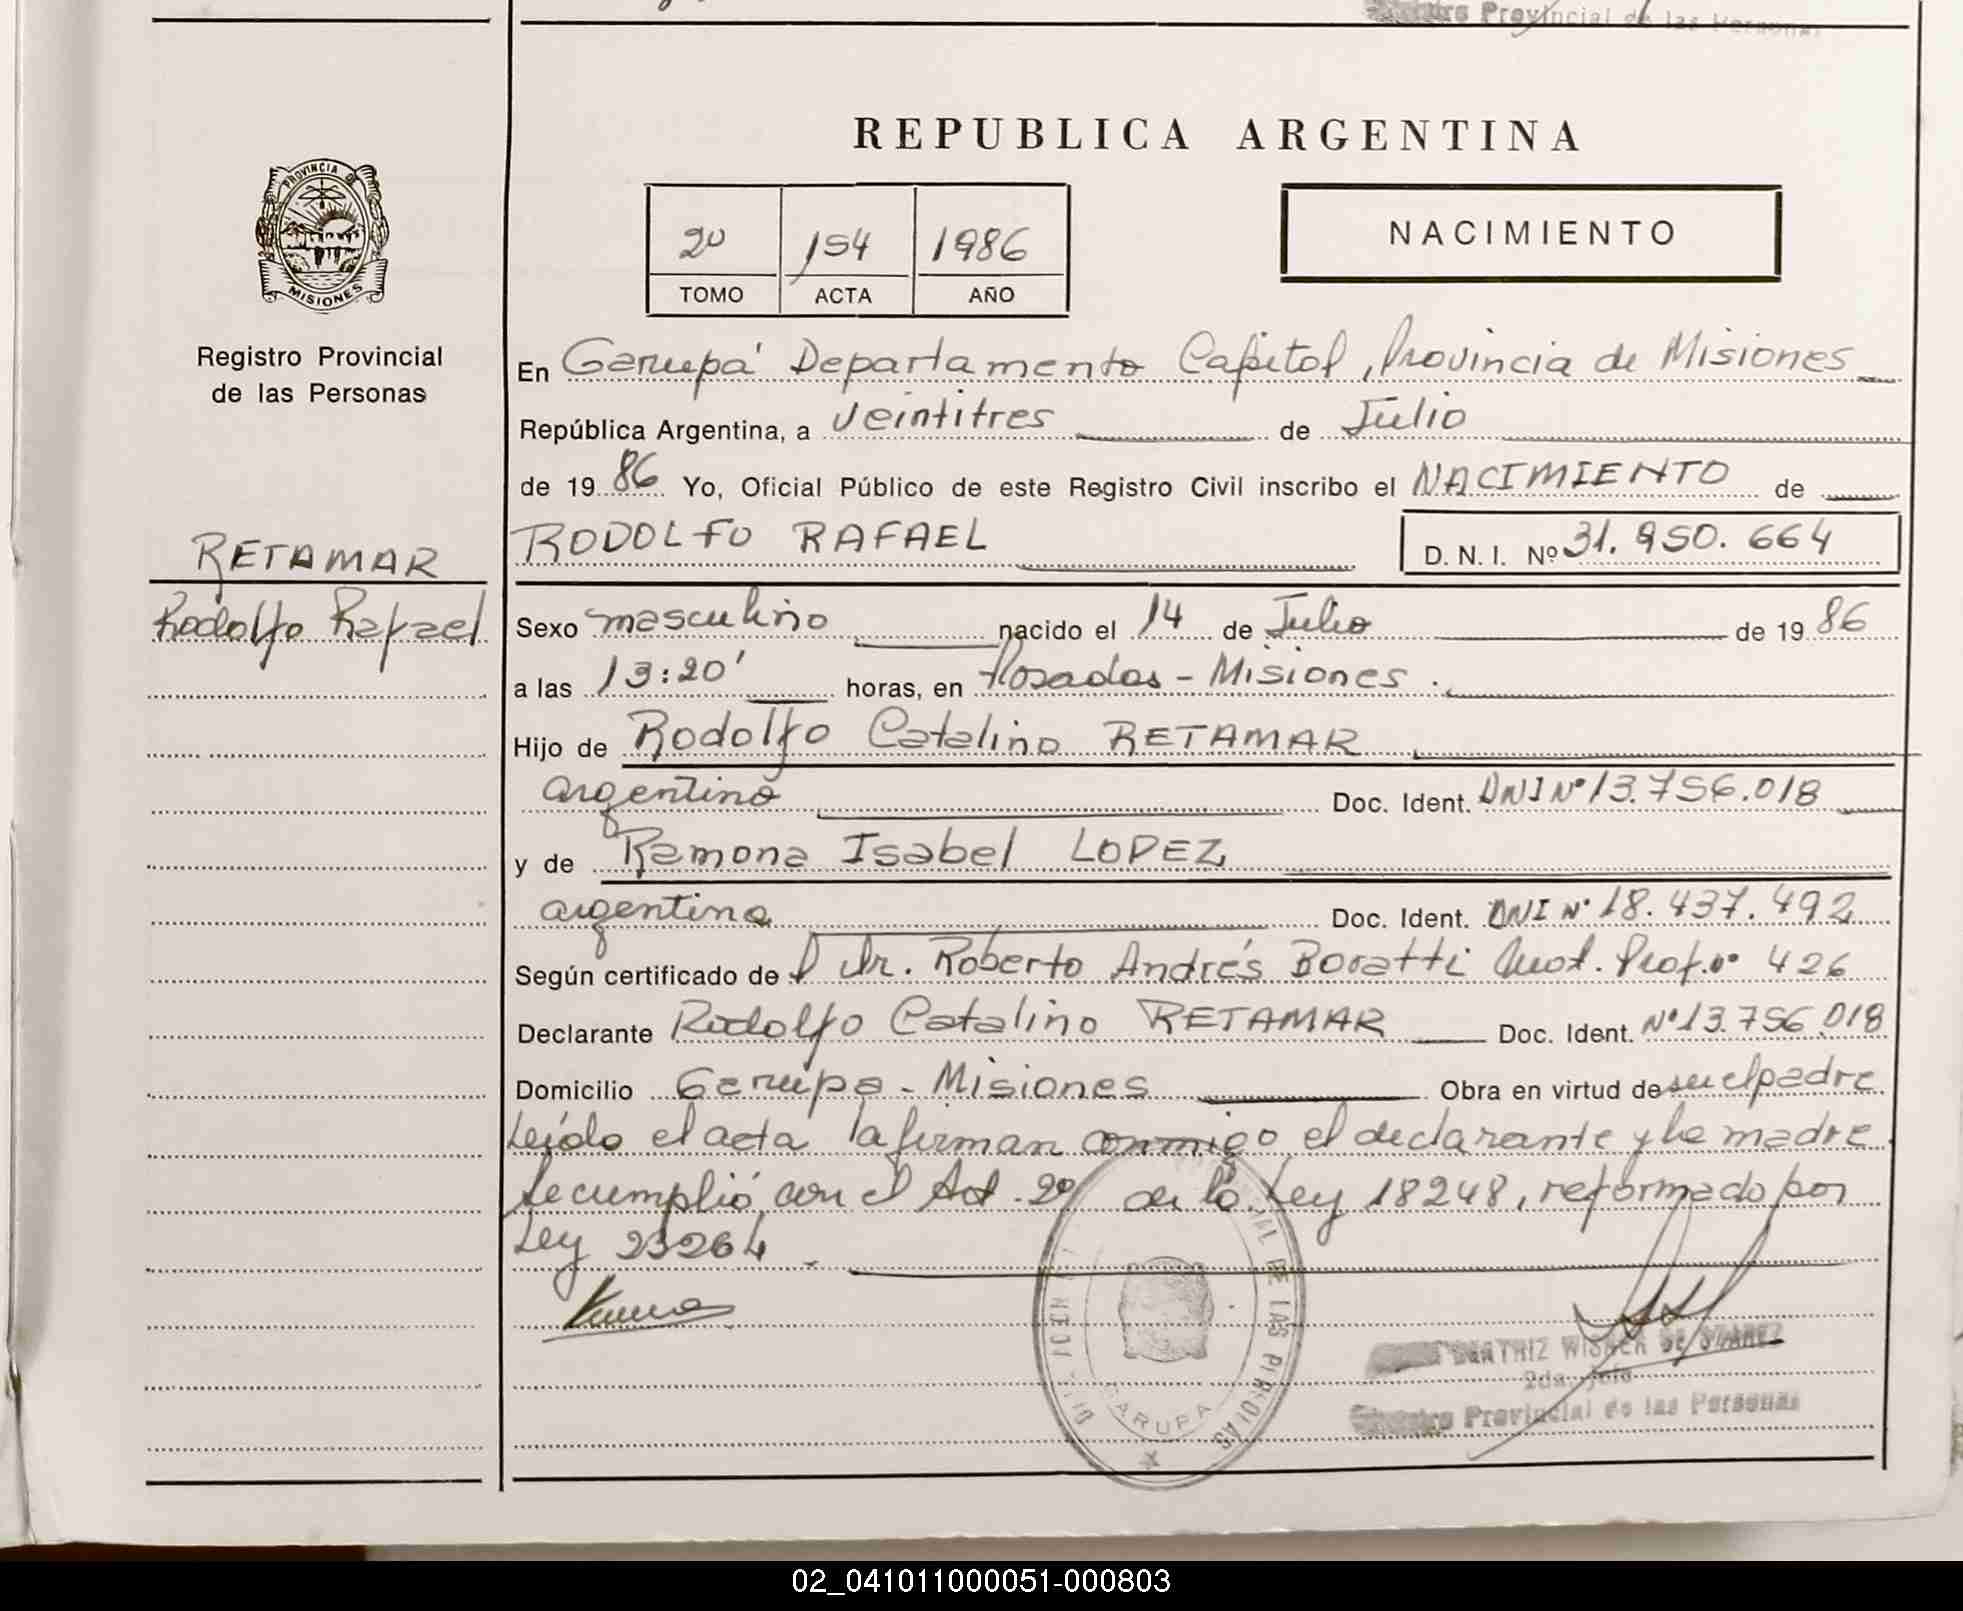 Registro Provincial de las Personas
REPUBLICA ARGENTINA
PROVINCIA DE
MISIONES
Registro Provincial
de las Personas
2º 154 1986
TOMO ACTA AÑO
NACIMIENTO
En Garupá Departamento Capital, Provincia de Misiones
República Argentina, a veintitres de Julio
de 1986 Yo, Oficial Público de este Registro Civil inscribo el NACIMIENTO de
RETAMAR
Rodolfo Rafael
RODOLFO RAFAEL D. N. I. Nº 31.950.664
Sexo masculino nacido el 14 de Julio de 1986
a las 13:20' horas, en Posadas - Misiones.
Hijo de Rodolfo Catalino RETAMAR
argentino Doc. Ident. DNI Nº 13.756.018
y de Ramona Isabel LOPEZ
argentina Doc. Ident. DNI Nº 18.437.492
Según certificado de Dr. Roberto Andrés Boratti Prof. Nº 426
Declarante Rodolfo Catalino RETAMAR Doc. Ident. Nº 13.756.018
Domicilio Garupa - Misiones Obra en virtud de su el padre
Leído el acta la firman conmigo el declarante y la madre
Se cumplió con el Art. 2º de la Ley 18248, reformado por
Ley 23264
DE LAS PERSONAS
GARUPA
BEATRIZ DE SUAREZ
2da. Jefe
Registro Provincial de las Personas
02_041011000051-000803